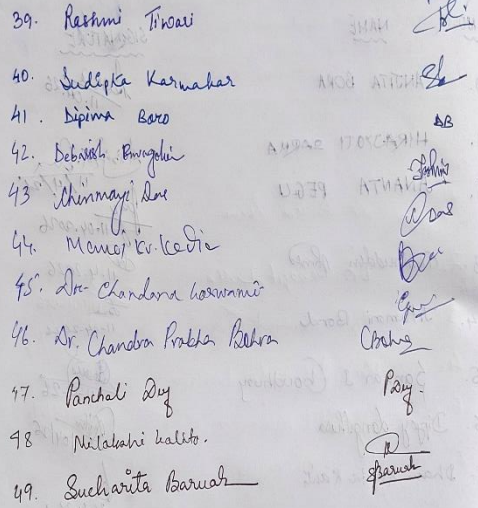 39. Rashmi Tiwari
40. Sudipta Karmakar
41. Dipima Boro DB
42. Debasish Buragohain
43 Chinmayi Das Das
44. Manoj Kr. Kedia
45. Dr. Chandana Goswami
46. Dr. Chandra Prabha Bohra CBohra
47. Panchali Dey PDey.
48 Nilakshi Kalita.
49. Sucharita Baruah SBaruah